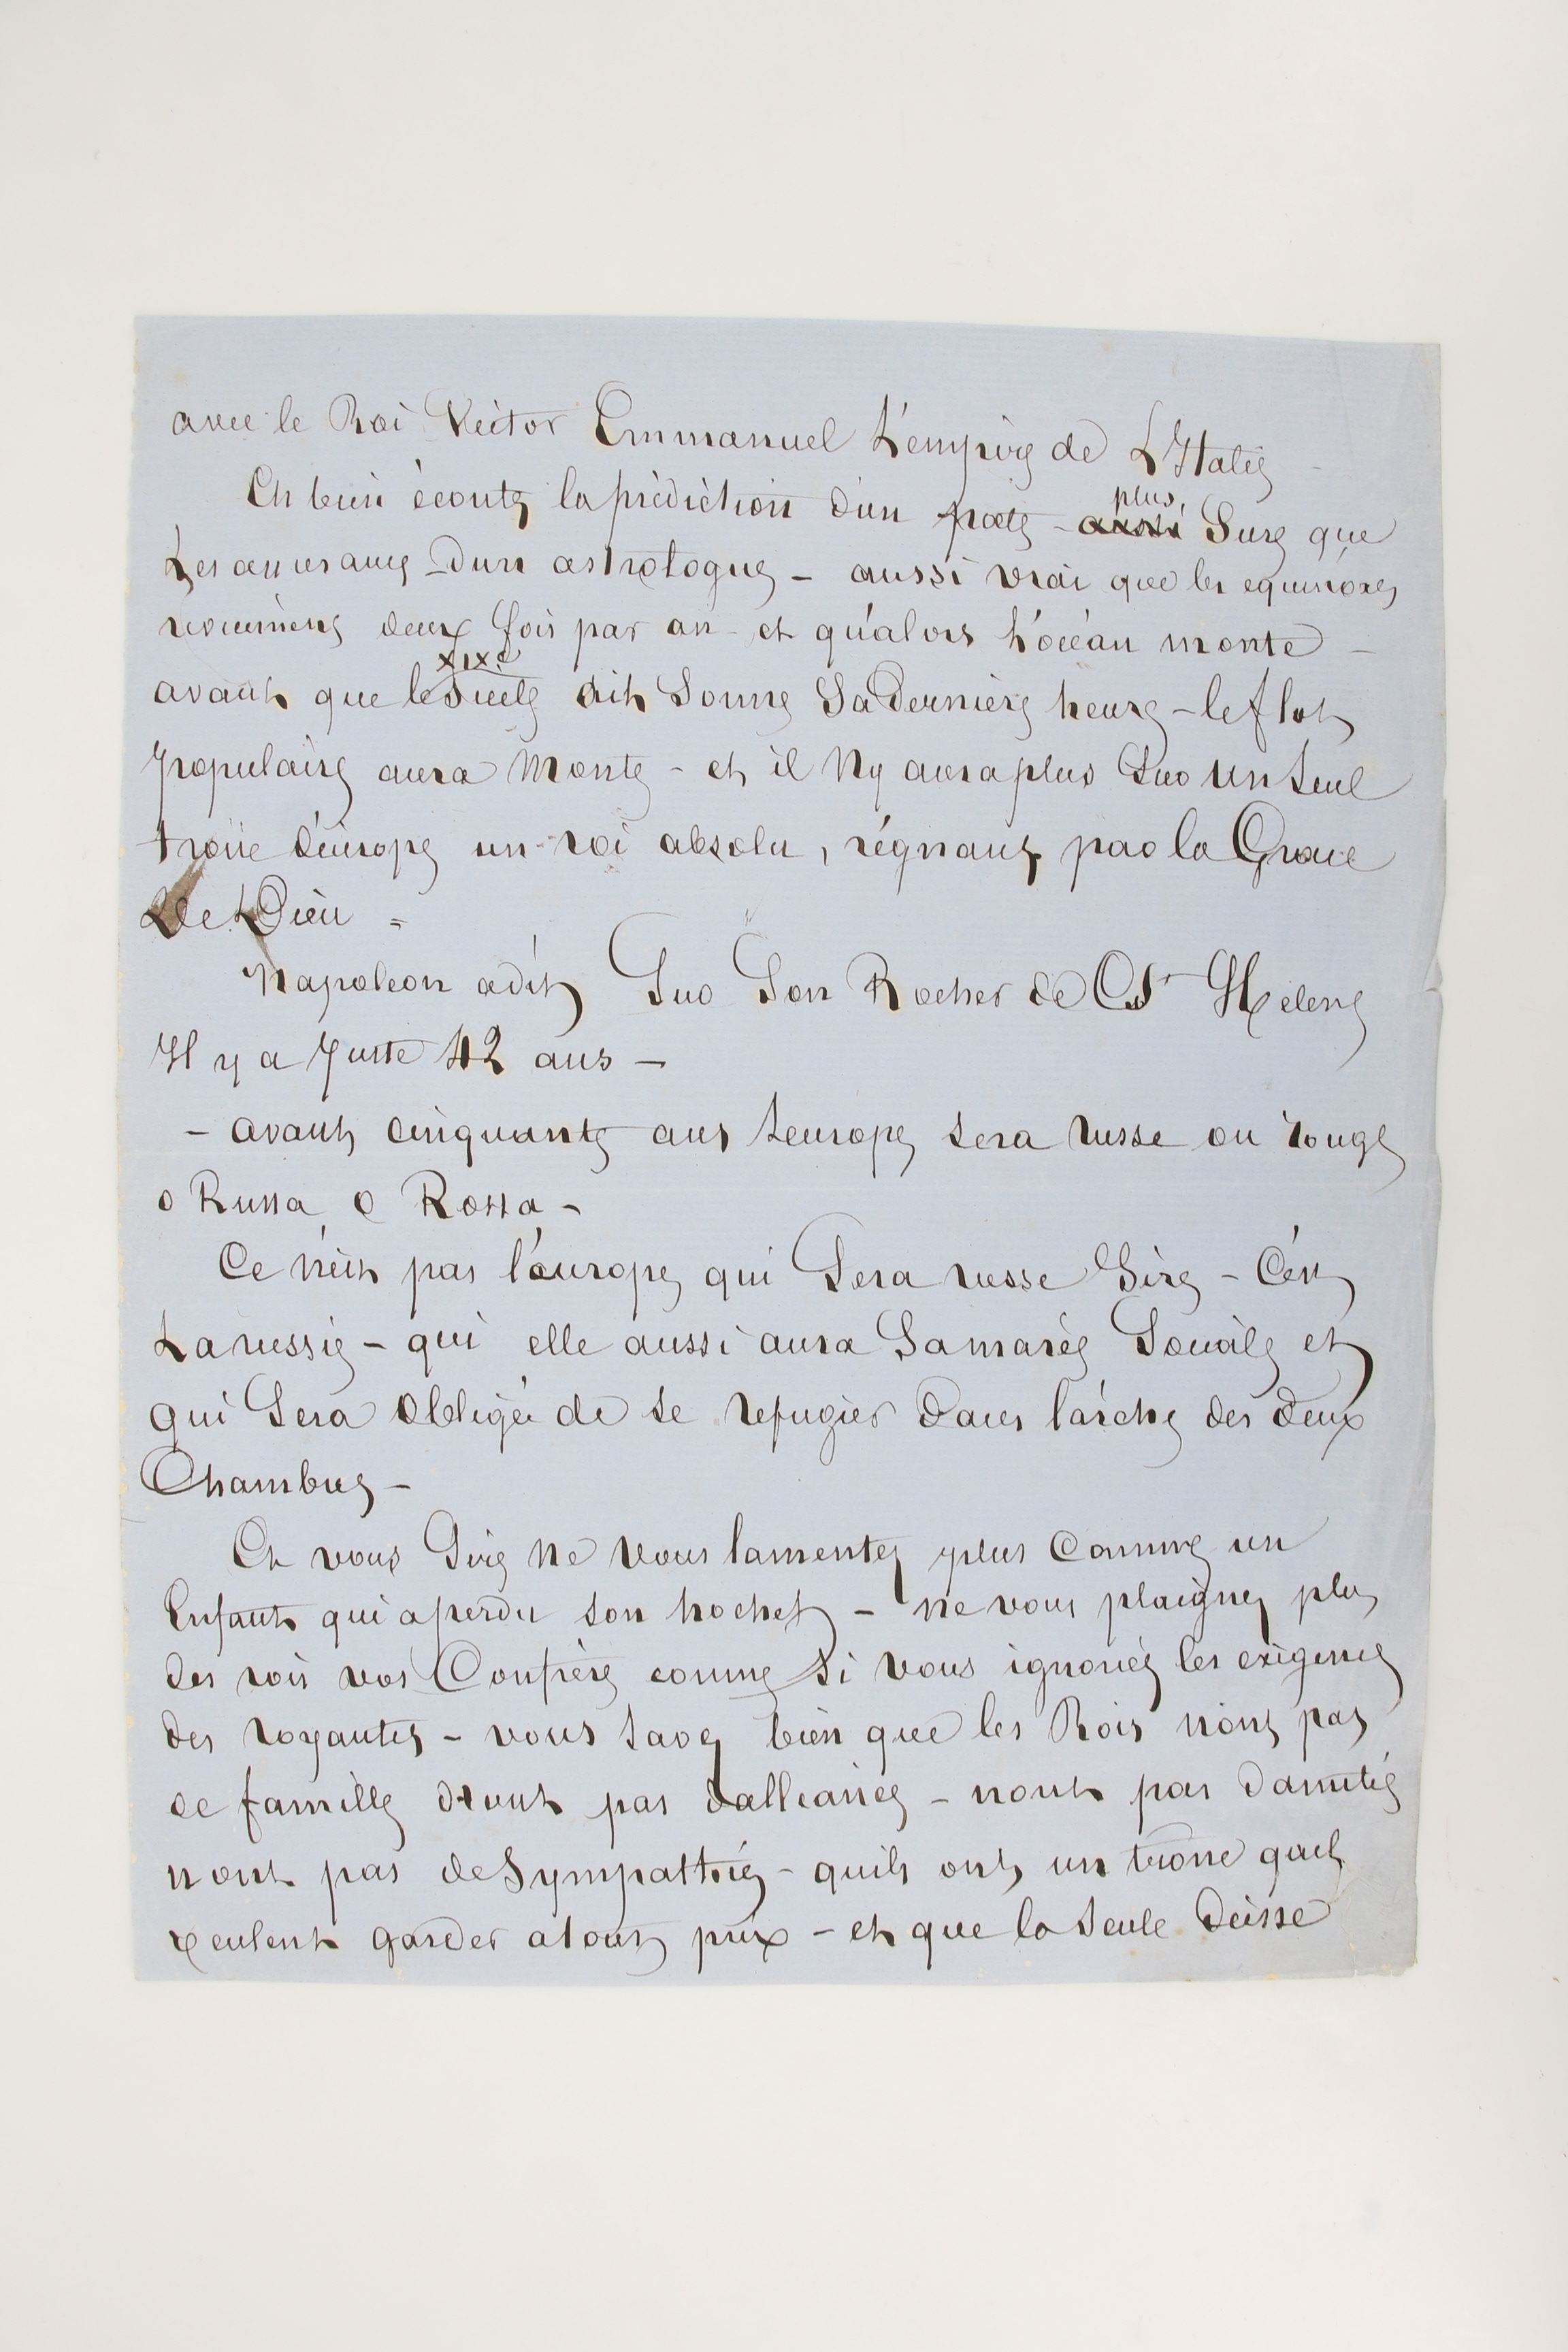 avec le Roi Victor Emmanuel L'empire de L'Italie
Eh bien écoutez la prédiction d'un poete - plus Sure que
Les assurances d'un astrologue - aussi vrai que les equinoxes
reviennent deux fois par an - et qu'alors L'océan monte -
avant que le XIXe siecle ait Sonné Sa Derniere heure - le flot
populaire aura Monté - et il Ny aura plus Sur un Seul
trône d'europe un roi absolu, régnant par la Grace
De Dieu =
Napoleon a dit Sur Son Rocher de Ste Helene
Il y a Juste 42 ans -
- avant cinquante ans Leurope Sera russe ou rouge
o Russa o Rossa -
Ce n'est pas l'europe qui Sera russe Sire - C'est
La russie - qui elle aussi aura Sa marée Sociale et
qui Sera Obligée de Se refugier Dans l'arche des deux
Chambres -
Et vous Sire Ne Vous lamentez plus Comme un
Enfant qui a perdu son hochet - ne vous plaignez plus
des rois vos Confrères comme Si vous ignoriez les exigences
des royautes - vous Savez bien que les Rois n'ont pas
de famille nont pas dalliances - nont pas Damitiés
nont pas de Sympathies - quils ont un trone quils
veulent garder a tout prix - et que la Seule Déesse